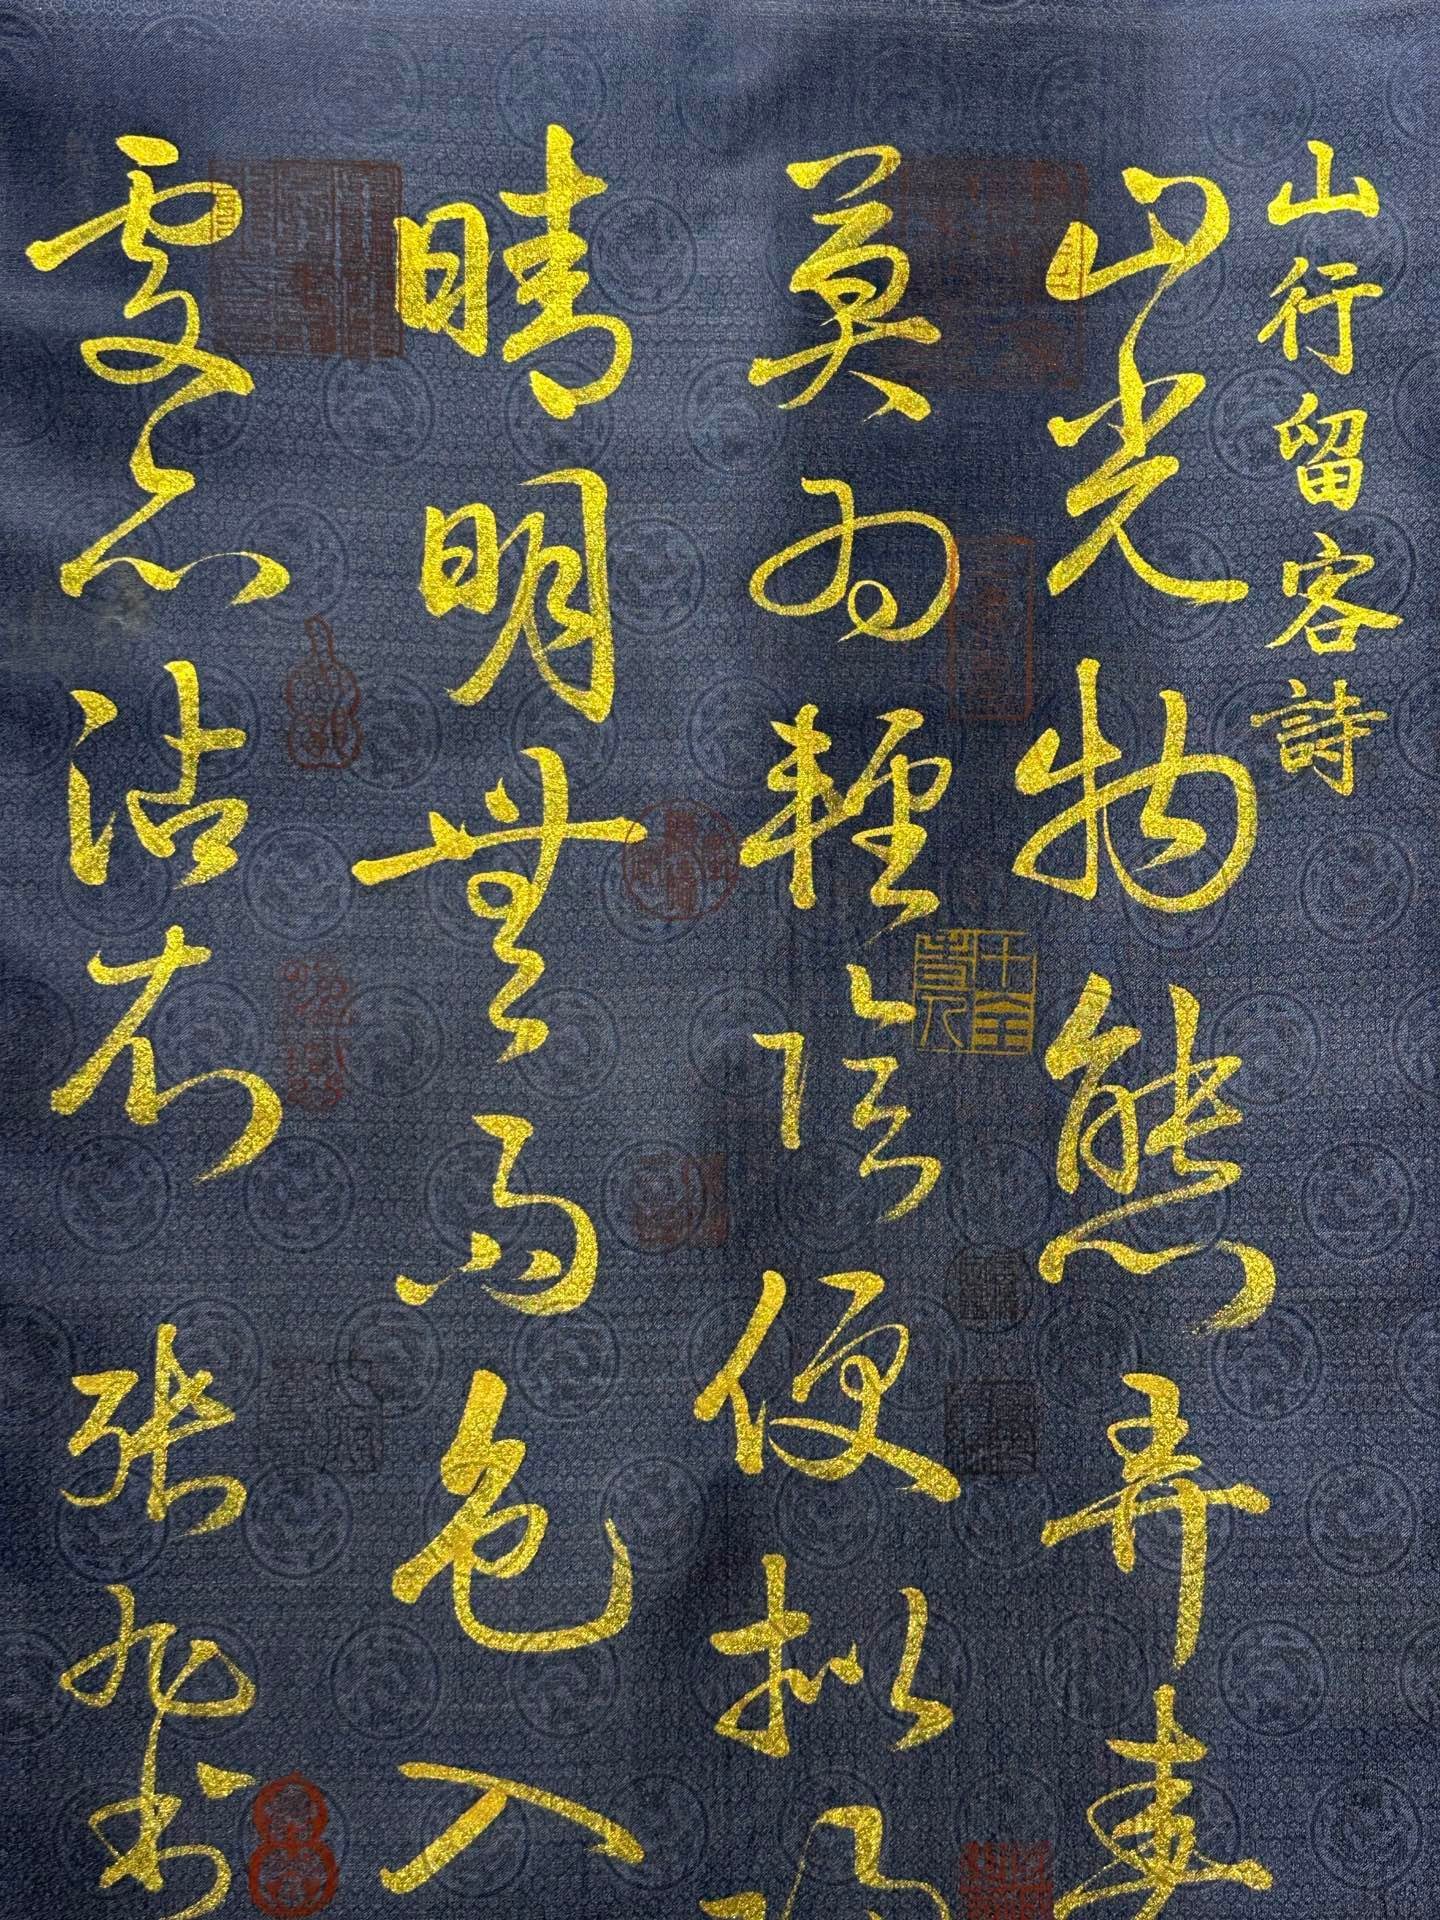 山行留客詩
山光物態弄春
莫為輕陰便拟归
晴明無雨色入
處亦沾衣 张旭书